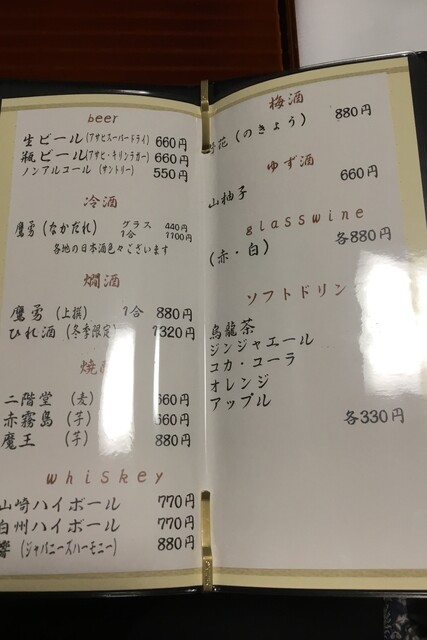 beer
生ビール(アサヒスーパードライ) 660円
瓶ビール(アサヒ・キリンラガー) 660円
ノンアルコール (サントリー) 550円
冷酒
鷹勇(なかだれ) グラス 440円
1合 1100円
各地の日本酒色々ございます
燗酒
鷹勇 (上撰) 1合 880円
ひれ酒 (冬季限定) 1320円
焼
二階堂 (麦) 660円
赤霧島 (芋) 660円
魔王 (芋) 880円
whiskey
山崎ハイボール 770円
白州ハイボール 770円
響 (ジャパニーズハーモニー) 880円
梅酒
野花 (のきょう) 880円
ゆず酒
山柚子 660円
glasswine
(赤・白) 各880円
ソフトドリン
烏龍茶
ジンジャエール
コカ・コーラ
オレンジ
アップル
各330円